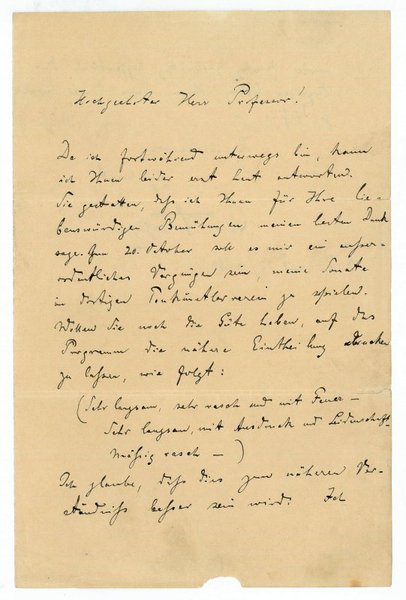 Hochgeehrter Herr Professor!
Da ich fortwährend unterwegs bin, kann
ich Ihnen leider erst heut antworten.
Sie gestatten, daß ich Ihnen für Ihre lie-
benswürdigen Bemühungen, meinen besten Dank
sage. Am 20. October soll es mir ein außer-
ordentliches Vergnügen sein, meine Sonate
im dortigen Tonkünstlerverein zu spielen.
Wollen Sie noch die Güte haben, auf das
Programm die nähere Eintheilung drucken
zu lassen, wie folgt:
(Sehr langsam, sehr rasch und mit Feuer –
Sehr langsam, mit Ausdruck und Leidenschaft
Mäßig rasch – )
Ich glaube, daß dies zum näheren Ver-
ständniß besser sein wird. Ich